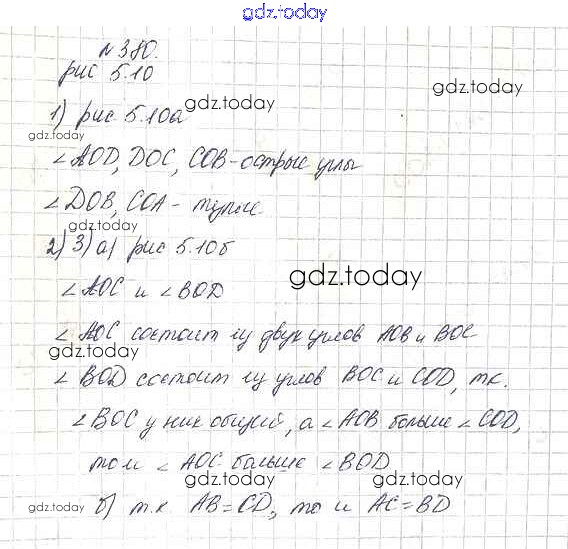 gdz.today
№ 380.
рис 5.10
gdz.today
gdz.today
1) рис. 5.10а
gdz.today
∠AOD, DOC, COB - острые углы
∠DOB, COA - тупые
gdz.today
2) 3) а) рис 5.10б
gdz.today
∠AOC и ∠BOD
∠AOC состоит из двух углов AOB и BOC
gdz.today
∠BOD состоит из углов BOC и COD, т.к.
∠BOC у них общий, а ∠AOB больше ∠COD,
то и ∠AOC больше ∠BOD
gdz.today
gdz.today
gdz.today
б) т.к AB = CD, то и AC = BD